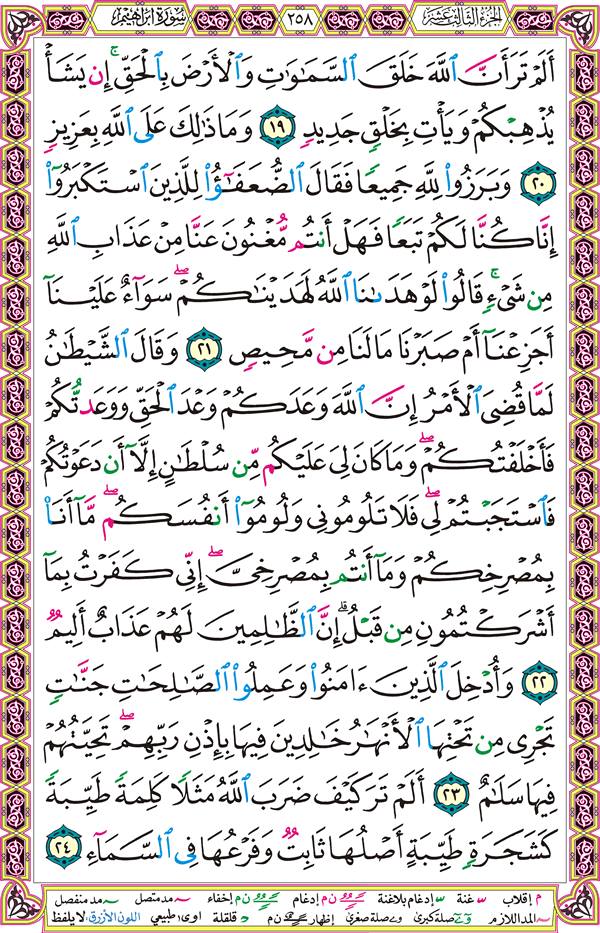 سورة إبراهيم ٢٥٨ الجزء الثالث عشر
أَلَمْ تَرَ أَنَّ ٱللَّهَ خَلَقَ ٱلسَّمَـٰوَٰتِ وَٱلْأَرْضَ بِٱلْحَقِّ ۚ إِن يَشَأْ
يُذْهِبْكُمْ وَيَأْتِ بِخَلْقٍ جَدِيدٍ ١٩ وَمَا ذَٰلِكَ عَلَى ٱللَّهِ بِعَزِيزٍ
٢٠ وَبَرَزُوا۟ لِلَّهِ جَمِيعًا فَقَالَ ٱلضُّعَفَـٰٓؤُا۟ لِلَّذِينَ ٱسْتَكْبَرُوٓا۟
إِنَّا كُنَّا لَكُمْ تَبَعًا فَهَلْ أَنتُم مُّغْنُونَ عَنَّا مِنْ عَذَابِ ٱللَّهِ
مِن شَىْءٍ ۚ قَالُوا۟ لَوْ هَدَىٰنَا ٱللَّهُ لَهَدَيْنَـٰكُمْ ۖ سَوَآءٌ عَلَيْنَآ
أَجَزِعْنَآ أَمْ صَبَرْنَا مَا لَنَا مِن مَّحِيصٍ ٢١ وَقَالَ ٱلشَّيْطَـٰنُ
لَمَّا قُضِىَ ٱلْأَمْرُ إِنَّ ٱللَّهَ وَعَدَكُمْ وَعْدَ ٱلْحَقِّ وَوَعَدتُّكُمْ
فَأَخْلَفْتُكُمْ ۖ وَمَا كَانَ لِىَ عَلَيْكُم مِّن سُلْطَـٰنٍ إِلَّآ أَن دَعَوْتُكُمْ
فَٱسْتَجَبْتُمْ لِى ۖ فَلَا تَلُومُونِى وَلُومُوٓا۟ أَنفُسَكُم ۖ مَّآ أَنَا۠
بِمُصْرِخِكُمْ وَمَآ أَنتُم بِمُصْرِخِىَّ ۖ إِنِّى كَفَرْتُ بِمَآ
أَشْرَكْتُمُونِ مِن قَبْلُ ۗ إِنَّ ٱلظَّـٰلِمِينَ لَهُمْ عَذَابٌ أَلِيمٌ
٢٢ وَأُدْخِلَ ٱلَّذِينَ ءَامَنُوا۟ وَعَمِلُوا۟ ٱلصَّـٰلِحَـٰتِ جَنَّـٰتٍ
تَجْرِى مِن تَحْتِهَا ٱلْأَنْهَـٰرُ خَـٰلِدِينَ فِيهَا بِإِذْنِ رَبِّهِمْ ۖ تَحِيَّتُهُمْ
فِيهَا سَلَـٰمٌ ٢٣ أَلَمْ تَرَ كَيْفَ ضَرَبَ ٱللَّهُ مَثَلًا كَلِمَةً طَيِّبَةً
كَشَجَرَةٍ طَيِّبَةٍ أَصْلُهَا ثَابِتٌ وَفَرْعُهَا فِى ٱلسَّمَآءِ ٢٤
م إقلاب س غنة س إدغام بلاغنة ن م إدغام ن م إخفاء ~ مد متصل ~ مد منفصل
~ المد اللازم صلة كبرى صلة صغرى إظهار ن م قلقلة اوى طبيعي اللون الأزرق لا يلفظ